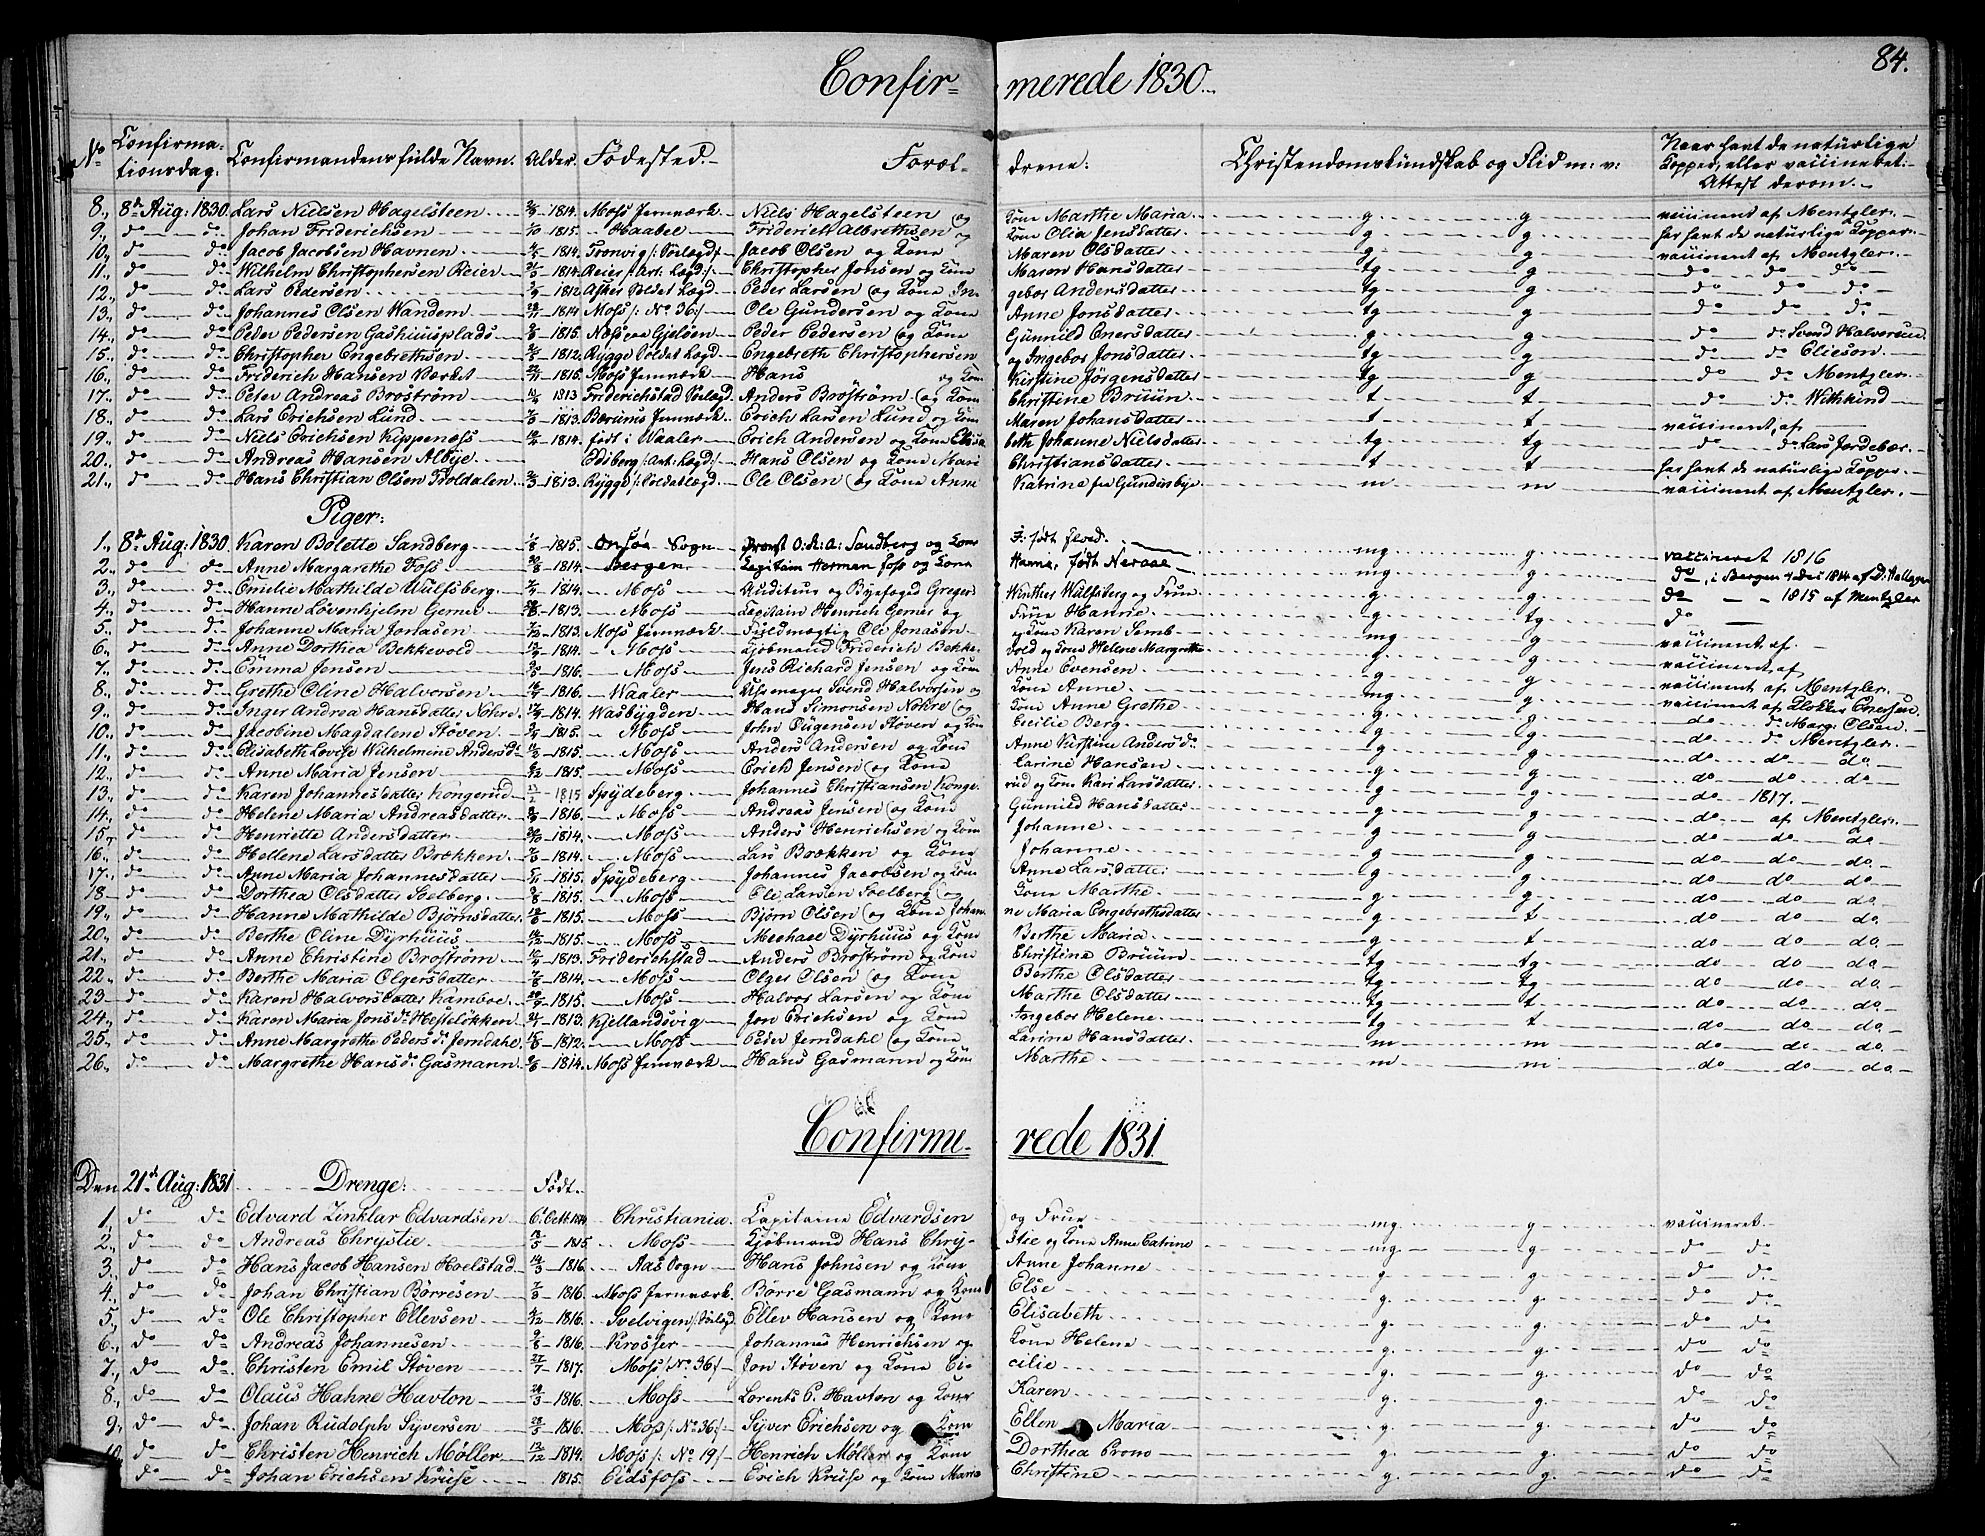 84.
Confir= merede 1830.
No Confirma= tionsdag: Confirmandens fulde Navn. Alder. Fødested. Foræl- drene: Christendomskundskab og Flid m: v: Naar havt de naturlige Kopper, eller vaccineret: Attest derom.
8., 8de Aug: 1830. Lars Nielsen Hagelsteen 1814. Moss Jernværk Niels Hagelsteen og Kone Marthe Maria g g vaccineret af Mentzler.
9., do do Johan Friderichsen 1815. Haabel Friderich Albrethsen og Kone Olia Jensdatter g g har havt de naturlige Kopper.
10., do do Jacob Jacobsen Havnen 1814. Tronvig Jacob Olsen og Kone Maren Olsdatter g g vaccineret af Mentzler.
11., do do Wilhelm Christophersen Reier 1814. Reier /: Art: Lægd :/ Christopher Jonsen og Kone Maren Hansdatter tg g do do do
12., do do Lars Pedersen 1812 Soldat Lægd Peder Larsen og Kone In= gebor Andersdatter tg g do do do
13., do do Johannes Olsen Wandem 1814 Moss /: No 36 :/ Ole Gundersen og Kone Anne Jonsdatter tg g do do do
14., do do Peder Pedersen 1815. Peder Pedersen og Kone Gunnild Enersdatter g g do do Svend Halvorsen
15., do do Christopher Engebrethsen 1812. Rygge Soldat Lægd Engebreth Christophersen og Ingebor Jonsdatter tg g do do Elieson.
16., do do Friderich Hansen Værket 1815. Moss Jernværk Hans og Kone Kirstine Jörgensdatter tg g do do Mentzler
17., do do Peter Andreas Broström 1813 Friderichstad Anders Broström og Kone Christine Bruun t t do do Withkind
18., do do Lars Erichsen Lund 1813. Bærums Jernværk Erich Larsen Lund og Kone Maren Johansdatter t t vaccineret, af
19., do do Niels Erichsen Kippenæss 1814. født i Waaler Erich Andersen og Kone Elisa beth Johanne Nielsdatter tg tg do do Lars Jordebær.
20., do do Andreas Hansen Albye Edsberg /: Art: Lægd :/ Hans Olsen og Kone Mari Christiansdatter t t har havt de naturlige Kopper.
21., do do Hans Christian Olsen 1813. Rygge /: Soldatlægd Ole Olsen og Kone Anne Katrine fra Gundersbye m m vaccineret af Mentzler.
Piger:
1., 8de Aug: 1830 Karen Bolette Sandberg 1815. Onsöe Sogn Provst O: R: A: Sandberg og Kone F: født Flood. mg g vaccineret 1816
2., do do Anne Margarethe Foss 1814. Bergen Capitain Herman Foss og Kone født mg. g. do, i Bergen 1814 af
3., do do Emilie Mathilde Wulfsberg 1814. Moss Auditeur og Byefoged Gregers Winther Wulfsberg og Frue g. g. do 1815 af Mentzler
4., do do Hanne Lövenhjelm Gerner 1813. Moss Capitain Henrich Gerner og Frue Hanne g. tg. do
5., do do Johanne Maria Jonasen 1813. Moss Jernværk Fuldmægtig Ole Jonasen og Kone Karen Semb mg g. vaccineret af
6., do do Anne Dorthea Bekkevold 1814. Moss Kjöbmand Friderich Bekke vold og Kone Helene Margrethe g. g. vaccineret af
7., do do Emma Jensen 1816. Moss Jens Richard Jensen og Kone Anne Evensen g. g. vaccineret af Mentzler.
8., do do Grethe Oline Halvorsen 1816. Waaler Svend Halvorsen og Kone Anne mg. g. vaccineret af Enersen.
9., do do Inger Andrea Hansdatter Nökre 1814. Wasbygden Hans Simonsen Nökre og Kone Anne Grethe g. g. do do Marg: Olsen
10., do do Jacobine Magdalene Stöven 1815. Moss John Stöven og Kone Cecilie Berg g. g. do do Mentzler.
11., do do Elisabeth Lovise Wilhelmine Andersd: 1815. Moss Anders Andersen og Kone Anne Kirstine Andersd: g g. do do do
12., do do Anne Maria Jensen 1815. Moss Erich Jensen og Kone Carine Hansen g g. do do do
13., do do Karen Johannesdatter Kongerud 1815 Spydeberg Johannes Christiansen Konge rud og Kone Kari Larsdatter g g. do 1817.
14., do do Helene Maria Andreasdatter 1816. Moss Andreas Jensen og Kone Gunnild Hansdatter g g. do af Mentzler.
15., do do Henriette Andersdatter 1814. Moss Anders Henrichsen og Kone Johanne g g. do do do
16., do do Hellene Larsdatter Brækken 1814. Moss Lars Brækken og Kone Johanne g. g do do do
17., do do Anne Maria Johannesdatter 1815. Spydeberg Johannes Jacobsen og Kone Anne Larsdatter g. g. do do do
18., do do Dorthea Olsdatter Soelberg 1815. Moss Ole Larsen Soelberg og Kone Marthe g g. do do do
19., do do Hanne Mathilde Björnsdatter 1815. Moss Björn Olsen og Kone Johan= ne Maria Engebrethsdatter g t. do do do
20., do do Berthe Oline Dyrhuus 1815. Moss Michael Dyrhuus og Kone Berthe Maria g t. do do do
21., do do Anne Christine Broström 1813. Friderichstad Anders Broström og Kone Christine Bruun tg. tg. do do do
22., do do Berthe Maria Olgersdatter 1814. Moss Olger Olsen og Kone Berthe Olsdatter tg tg. do do do
23., do do Karen Halvorsdatter Kamboe 1815. Moss Halvor Larsen og Kone Marthe Olsdatter tg t. do do do
24., do do Karen Maria Jonsd: Hestelökken 1813. Kjellandsvig Jon Erichsen og Kone Ingebor Helene tg t. do do do
25., do do Anne Margrethe Pedersd: Jerndahl 1812. Moss Peder Jerndahl og Kone Carine Hansdatter m m do do do
26., do do Margrethe Hansd: Gasmann 1814. Moss Jernværk Hans Gasmann og Kone Marthe m m. do do do
Confirme= rede 1831.
Den 21de Aug: 1831 Drenge: Født
1., do do Edvard Zinklar Edvardsen 6 Octb: 1814 Christiania. Capitaine Edvardsen og Frue mg. g. vaccineret.
2., do do Andreas Chrystie 1815 Moss Kjöbmand Hans Chry= stie og Kone Anne Catrine mg. g. do do
3., do do Hans Jacob Hansen Hoelstad 1816. Aas Sogn Hans Johnsen og Kone Anne Johanne g. g. do do
4., do do Johan Christian Börresen 1816. Moss Jernværk. Börre Gasmann og Kone Else g. g. do do
5., do do Ole Christopher Ellevsen 1816. Svelvigen Ellev Hansen og Kone Elisabeth g. g. do do
6., do do Andreas Johannesen 1816. Krosser Johannes Henrichsen og Kone Helene g. g. do do
7., do do Christen Emil Stöven 22/7 1817. Moss /: No 36 :/ Jon Stöven og Kone Ce= cilie g. g. do do
8., do do Claus Hahne Havton 1816. Moss Lorents C. Havton og Kone Karen g. g. do do
9., do do Johan Rudolph Syversen 1816. Moss /: No 36 :/ Syver Erichsen og Kone Ellen Maria g. g. do do
10., do do Christen Henrich Møller 1814. Moss /: No 19 :/ Henrich Møller og Kone Dorthea g. g. do do
do do Johan Erichsen Kruse 1815. Eidsfoss Erich Kruse og Kone Maria Christine g. g. do do